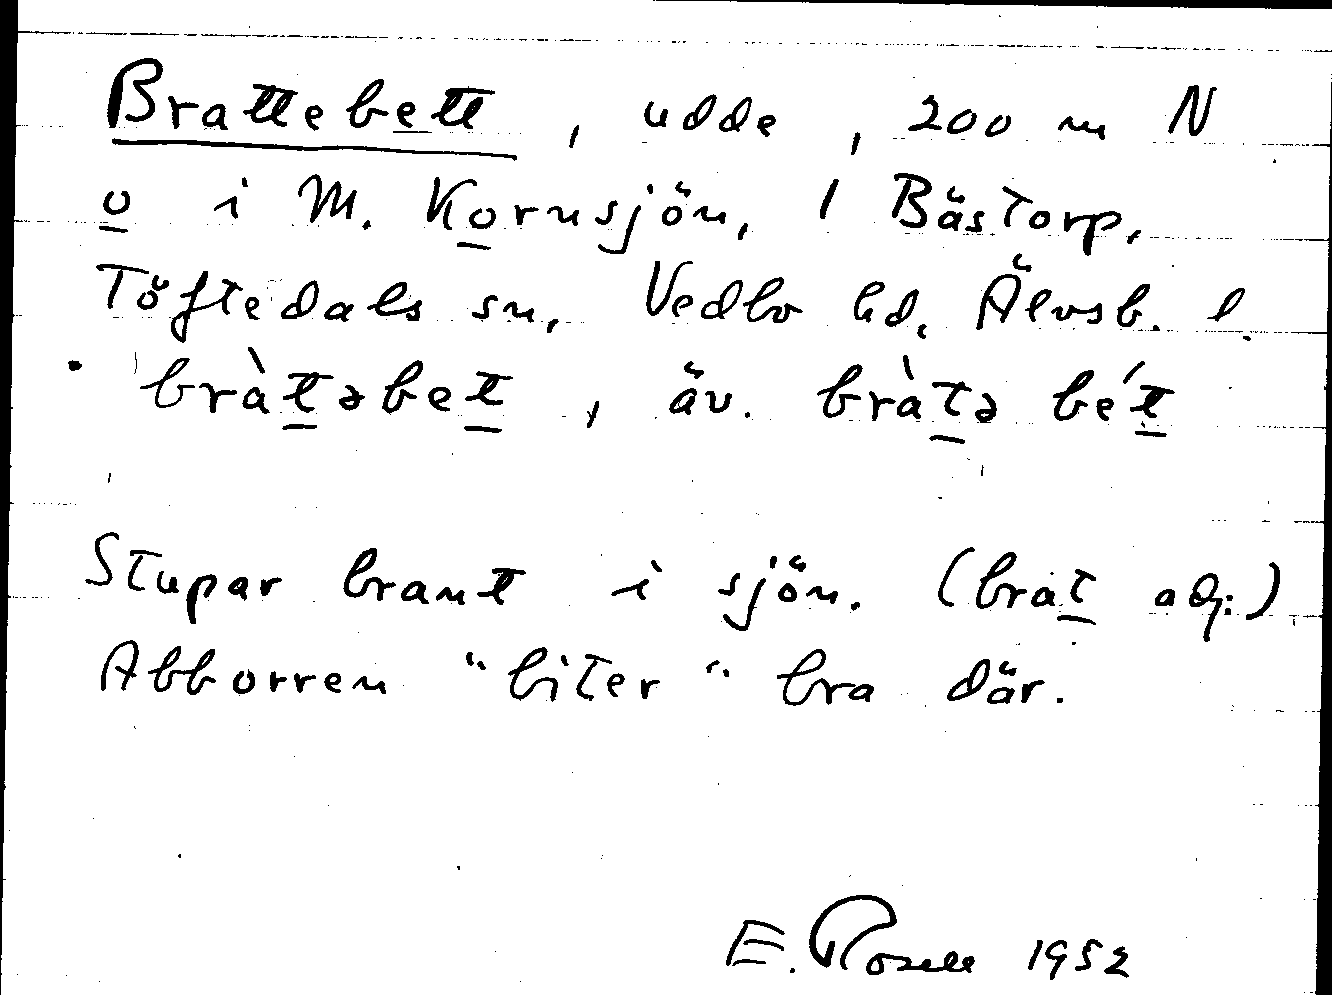 Brattebett, udde, 200 m N
o i M. Kornsjön, 1 Bästorp,
Töftedals sn, Vedbo hd, Älvsb. l.
bràtəbet, äv. bràtə bét
Stupar brant i sjön. (brat adj.)
Abborren "biter" bra där.
E. Rosell 1952